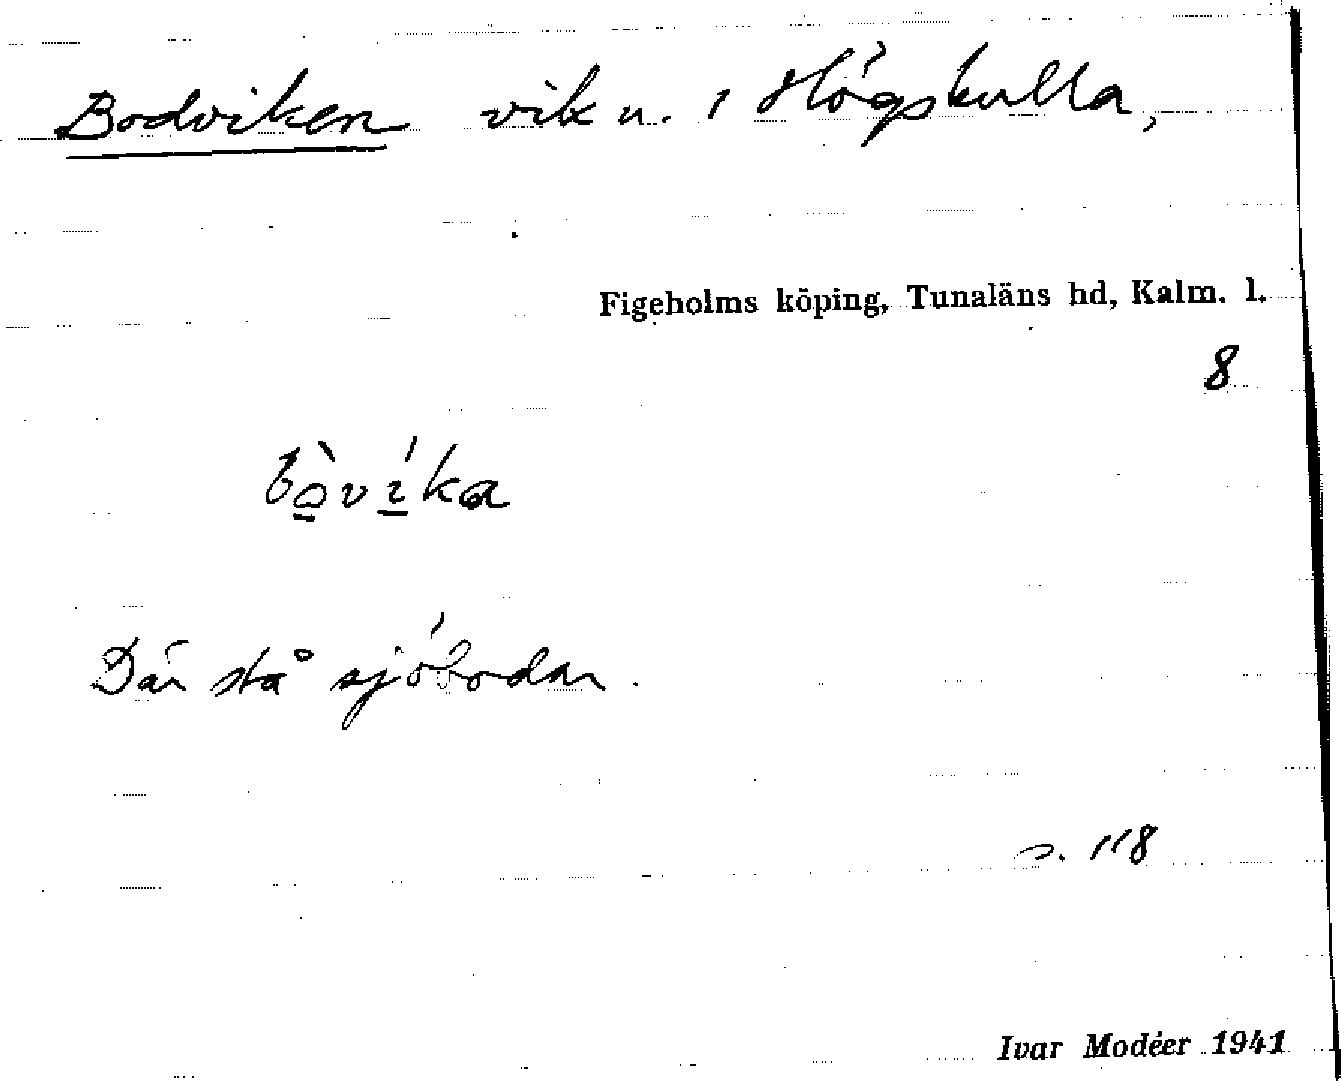 Bodviken vik u. 1 Högskulla,
Figeholms köping, Tunaläns hd, Kalm. l.
8
bò̲ví̲ka
Där stå sjöbodar.
s. 118
Ivar Modéer 1941